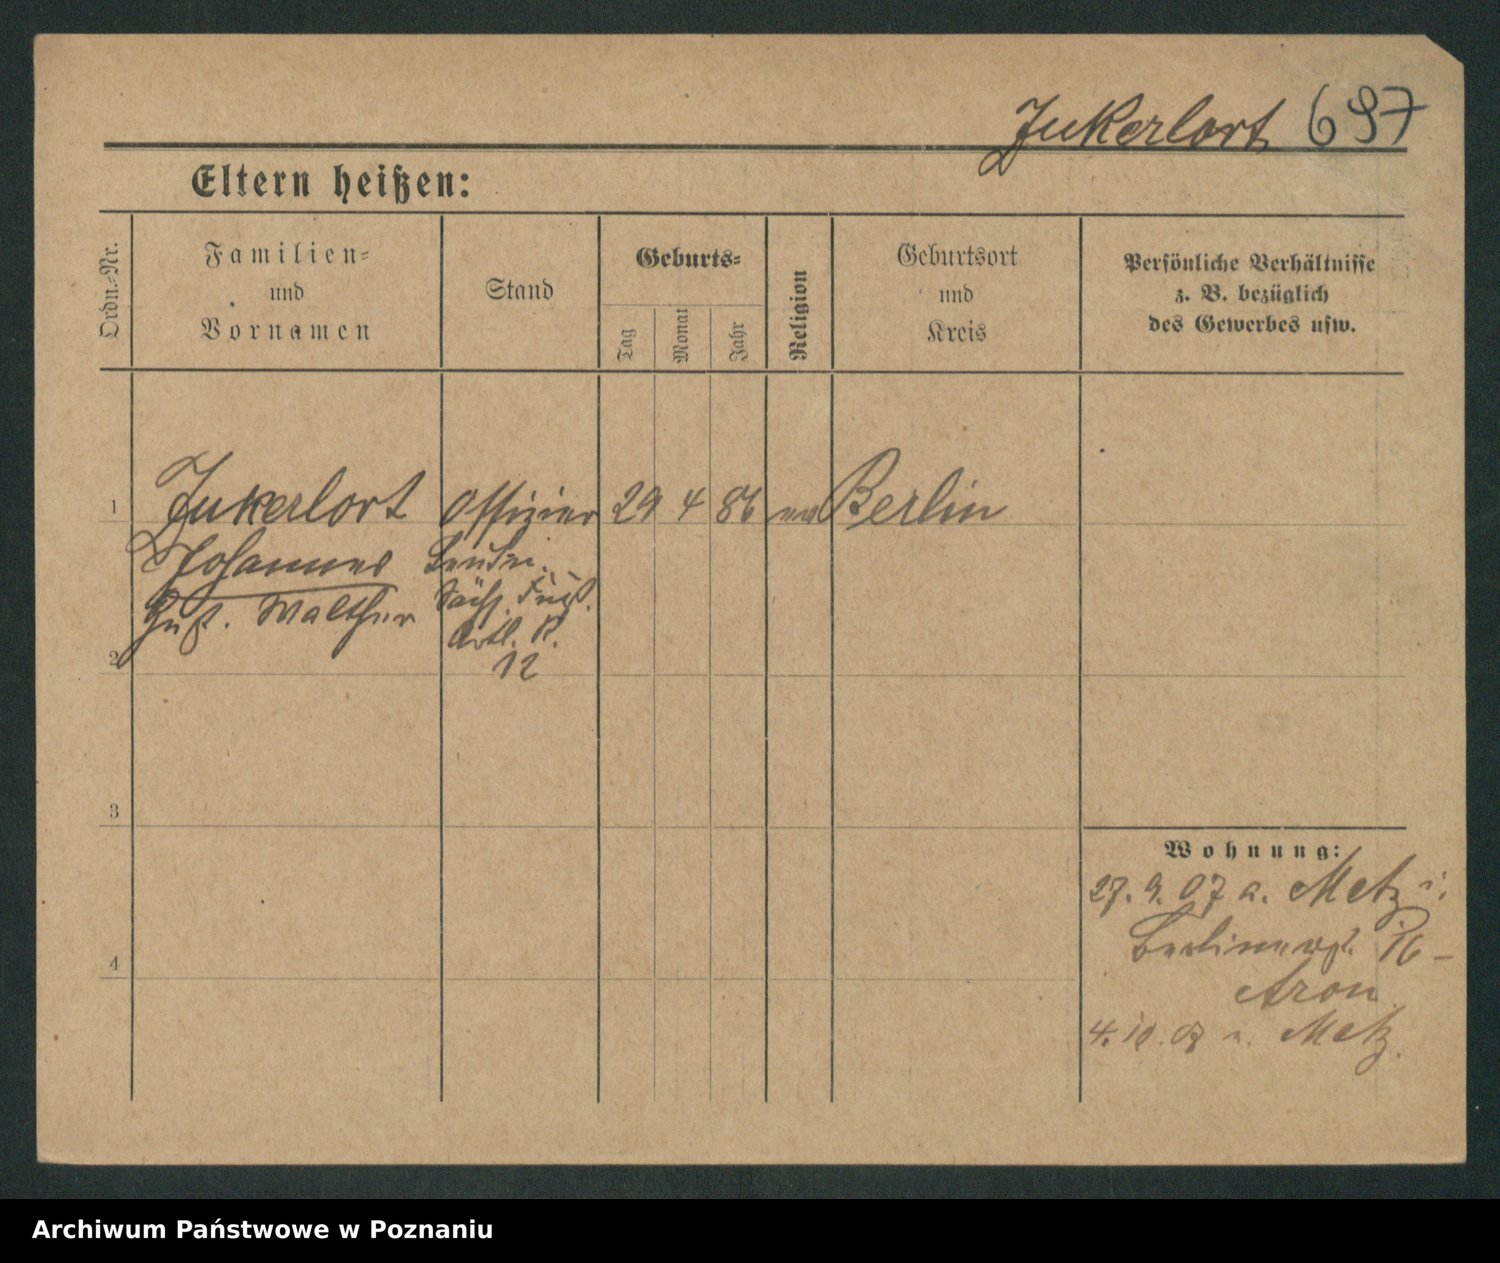 Jukerlort 697
Eltern heißen:
Ordn.-Nr.
Familien-
und
Vornamen
Stand
Geburts-
Tag
Monat
Jahr
Religion
Geburtsort
und
Kreis
Persönliche Verhältnisse
z. B. bezüglich
des Gewerbes usw.
1 Jukerlort Offizier 29 4 86 ev Berlin
Johannes
Sächs. Fuß.
Gust. Walther
Artl. R.
2
12
3
4
Wohnung:
27. 9. 07 a. Metz i.
Berlinerst. 16 -
Aron
4. 10. 07 n. Metz.